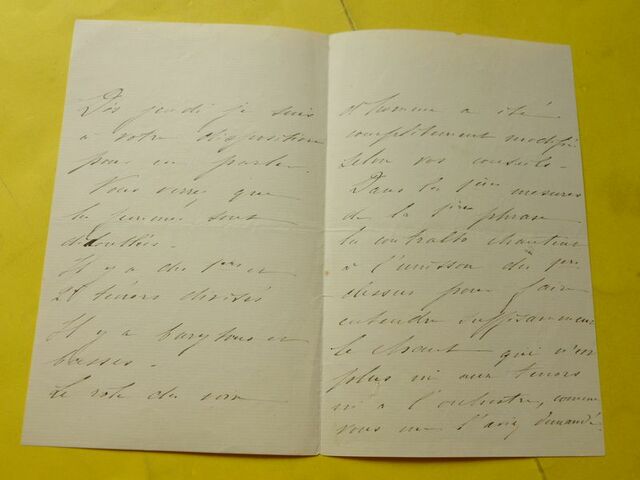 Dès jeudi je suis
à votre disposition
pour en parler.
Vous verrez que
les femmes sont
dédoublées.
Il y a des 1ers et
2ds ténors divisés
Il y a barytons et
basses.
Le rôle du
d'homme a été
complètement modifié
selon vos conseils.
Dans les 1ères mesures
de la 1ère phrase
les contralti chantent
à l'unisson des 1ers
dessus pour faire
entendre suffisamment
le chant qui n'est
plus ni aux ténors
ni à l'orchestre, comme
vous me l'avez demandé.